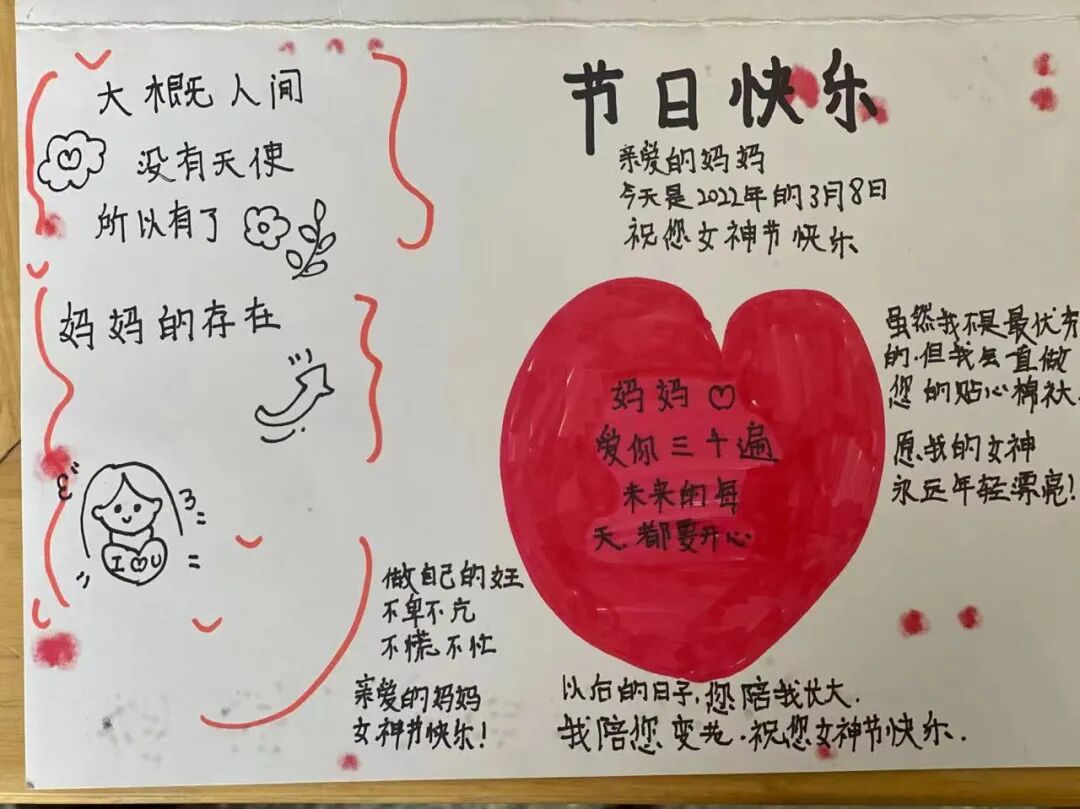 大概人间
没有天使
所以有了
妈妈的存在
I U
节日快乐
亲爱的妈妈
今天是2022年的3月8日
祝您女神节快乐
虽然我不是最优秀
的.但我会一直做
您的贴心棉袄.
愿我的女神
永远年轻漂亮!
妈妈
爱你三千遍
未来的每
天.都要开心
做自己的女王
不卑不亢
不慌不忙
亲爱的妈妈
女神节快乐!
以后的日子,您陪我长大.
我陪您变老.祝您女神节快乐.